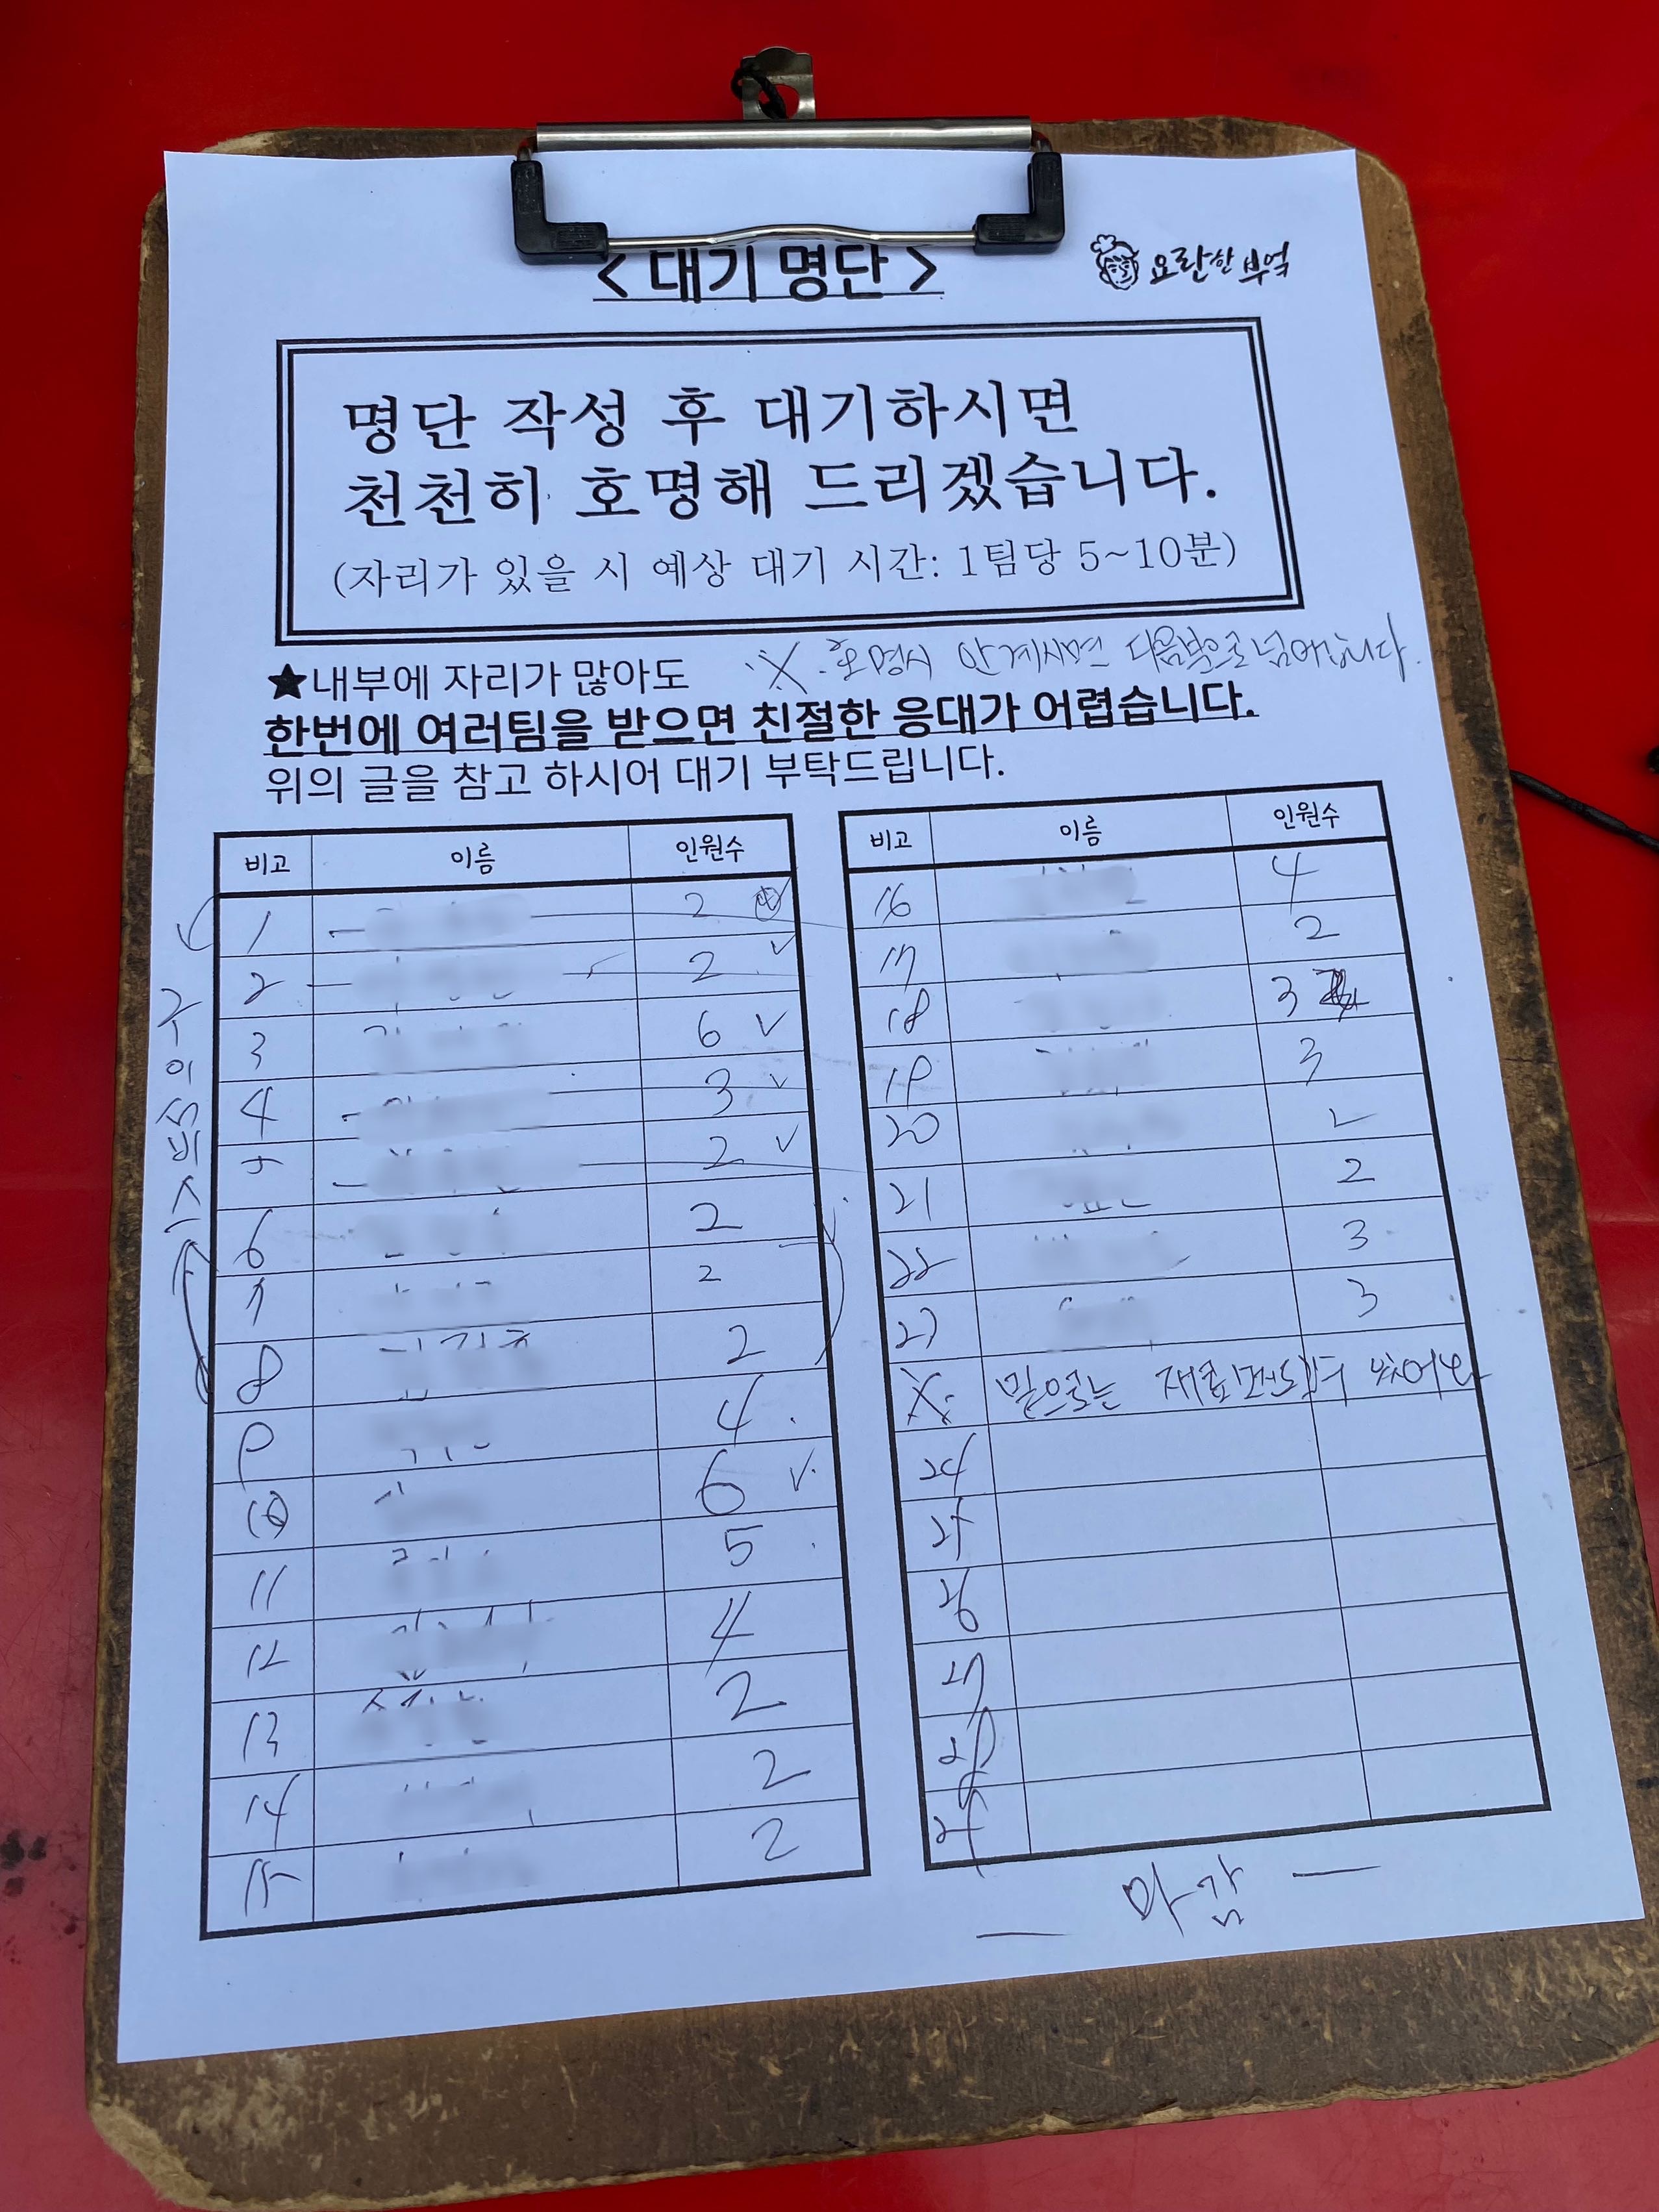 < 대기 명단 >
요란한 부엌
명단 작성 후 대기하시면
천천히 호명해 드리겠습니다.
(자리가 있을 시 예상 대기 시간: 1팀당 5~10분)
※ 호명시 안계시면 다음분으로 넘어갑니다.
★내부에 자리가 많아도
한번에 여러팀을 받으면 친절한 응대가 어렵습니다.
위의 글을 참고 하시어 대기 부탁드립니다.
비고 이름 인원수
1 2
2 2
3 6
4 3
5 2
6 2
7 2
8 2
9 4
10 6
11 5
12 4
13 2
14 2
15 2
비고 이름 인원수
16 4
17 2
18 3
19 3
20 2
21 2
22 3
23 3
※ 밑으로는
24
25
26
27
28
29
마감